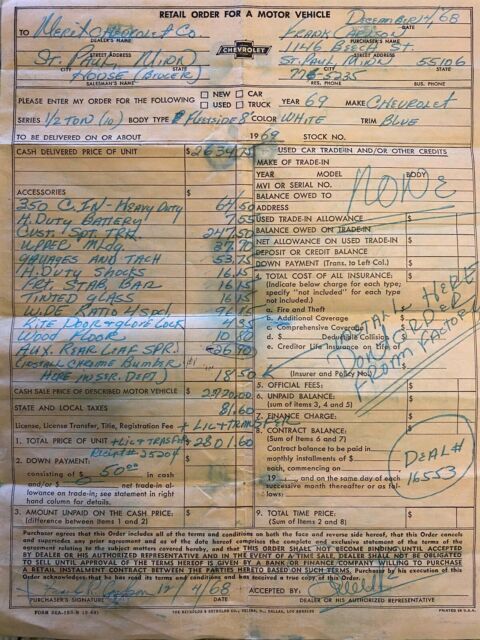 RETAIL ORDER FOR A MOTOR VEHICLE
December 4/68
TO Merit Chevrolet Co. Frank Carlson
DEALER'S NAME PURCHASER'S NAME
1146 Beech St.
STREET ADDRESS STREET ADDRESS
St. Paul, Minn CHEVROLET St. Paul, Minn 55106
CITY STATE CITY STATE
House (Bincer) 776-5235
SALESMAN'S NAME RES. PHONE BUS. PHONE
PLEASE ENTER MY ORDER FOR THE FOLLOWING NEW CAR USED TRUCK YEAR 69 MAKE Chevrolet
SERIES 1/2 TON (10) BODY TYPE Fleetside 8' COLOR White TRIM Blue
TO BE DELIVERED ON OR ABOUT 1969 STOCK NO.
CASH DELIVERED PRICE OF UNIT $ 2634.75
ACCESSORIES
350 C. IN - Heavy Duty 64.50
H. Duty Battery 7.55
Cust. Spt. Trk 247.50
Upper Mldg. 37.70
Gauages and Tach 53.75
H. Duty Shocks 16.15
Frt. Stab. Bar 16.15
Tinted Glass 16.15
Wide Ratio 4 spd.
Kite Door & Glove Lock 4.85
Wood Floor
Aux. Rear Leaf Spr.
(Install Chrome Bumper
Here in Ser. Dept) 18.50
CASH SALE PRICE OF DESCRIBED MOTOR VEHICLE $ 2720.00
STATE AND LOCAL TAXES 81.60
License, License Transfer, Title, Registration Fee + Lic + Transfer
1. TOTAL PRICE OF UNIT + Lic + Transfer $ 2801.60
2. DOWN PAYMENT: Receipt # 35204
consisting of $ 50.00 in cash
and/or $ net trade-in al-
lowance on trade-in; see statement in right
hand column for details.
3. AMOUNT UNPAID ON THE CASH PRICE: $
(difference between Items 1 and 2)
USED CAR TRADE-IN AND/OR OTHER CREDITS
MAKE OF TRADE-IN
YEAR MODEL BODY
MVI OR SERIAL NO.
None
BALANCE OWED TO
ADDRESS
USED TRADE-IN ALLOWANCE $
BALANCE OWED ON TRADE-IN $
NET ALLOWANCE ON USED TRADE-IN $
DEPOSIT OR CREDIT BALANCE $
DOWN PAYMENT (Trans. to Left Col.) $
4. TOTAL COST OF ALL INSURANCE: $
(Indicate below charge for each type;
specify "not included" for each type
not included.)
a. Fire and Theft
b. Additional Coverage
c. Comprehensive Coverage
d. $ Deductible Collision
e. Creditor Life Insurance on Life of
(Insurer and Policy No.)
Install Here
Don't Order
From Factory
5. OFFICIAL FEES: $
6. UNPAID BALANCE: $
(sum of items 3, 4 and 5)
7. FINANCE CHARGE: $
8. CONTRACT BALANCE: $
(Sum of items 6 and 7)
Contract balance to be paid in
monthly installments of $
each, commencing on
19 , and on the same day of each
successive month thereafter or as fol-
lows:
Deal #
16553
9. TOTAL TIME PRICE: $
(Sum of Items 2 and 8)
Purchaser agrees that this Order includes all of the terms and conditions on both the face and reverse side hereof, that this Order cancels
and supersedes any prior agreement and as of the date hereof comprises the complete and exclusive statement of the terms of the
agreement relating to the subject matters covered hereby, and that THIS ORDER SHALL NOT BECOME BINDING UNTIL ACCEPTED
BY DEALER OR HIS AUTHORIZED REPRESENTATIVE AND IN THE EVENT OF A TIME SALE, DEALER SHALL NOT BE OBLIGATED
TO SELL UNTIL APPROVAL OF THE TERMS HEREOF IS GIVEN BY A BANK OR FINANCE COMPANY WILLING TO PURCHASE
A RETAIL INSTALMENT CONTRACT BETWEEN THE PARTIES HERETO BASED ON SUCH TERMS. Purchaser by his execution of this
Order acknowledges that he has read its terms and conditions and has received a true copy of this Order.
12/4/68 ACCEPTED BY:
PURCHASER'S SIGNATURE DATE DEALER OR HIS AUTHORIZED REPRESENTATIVE
THE REYNOLDS & REYNOLDS CO., CELINA, O., DALLAS, LOS ANGELES PRINTED IN U.S.A.